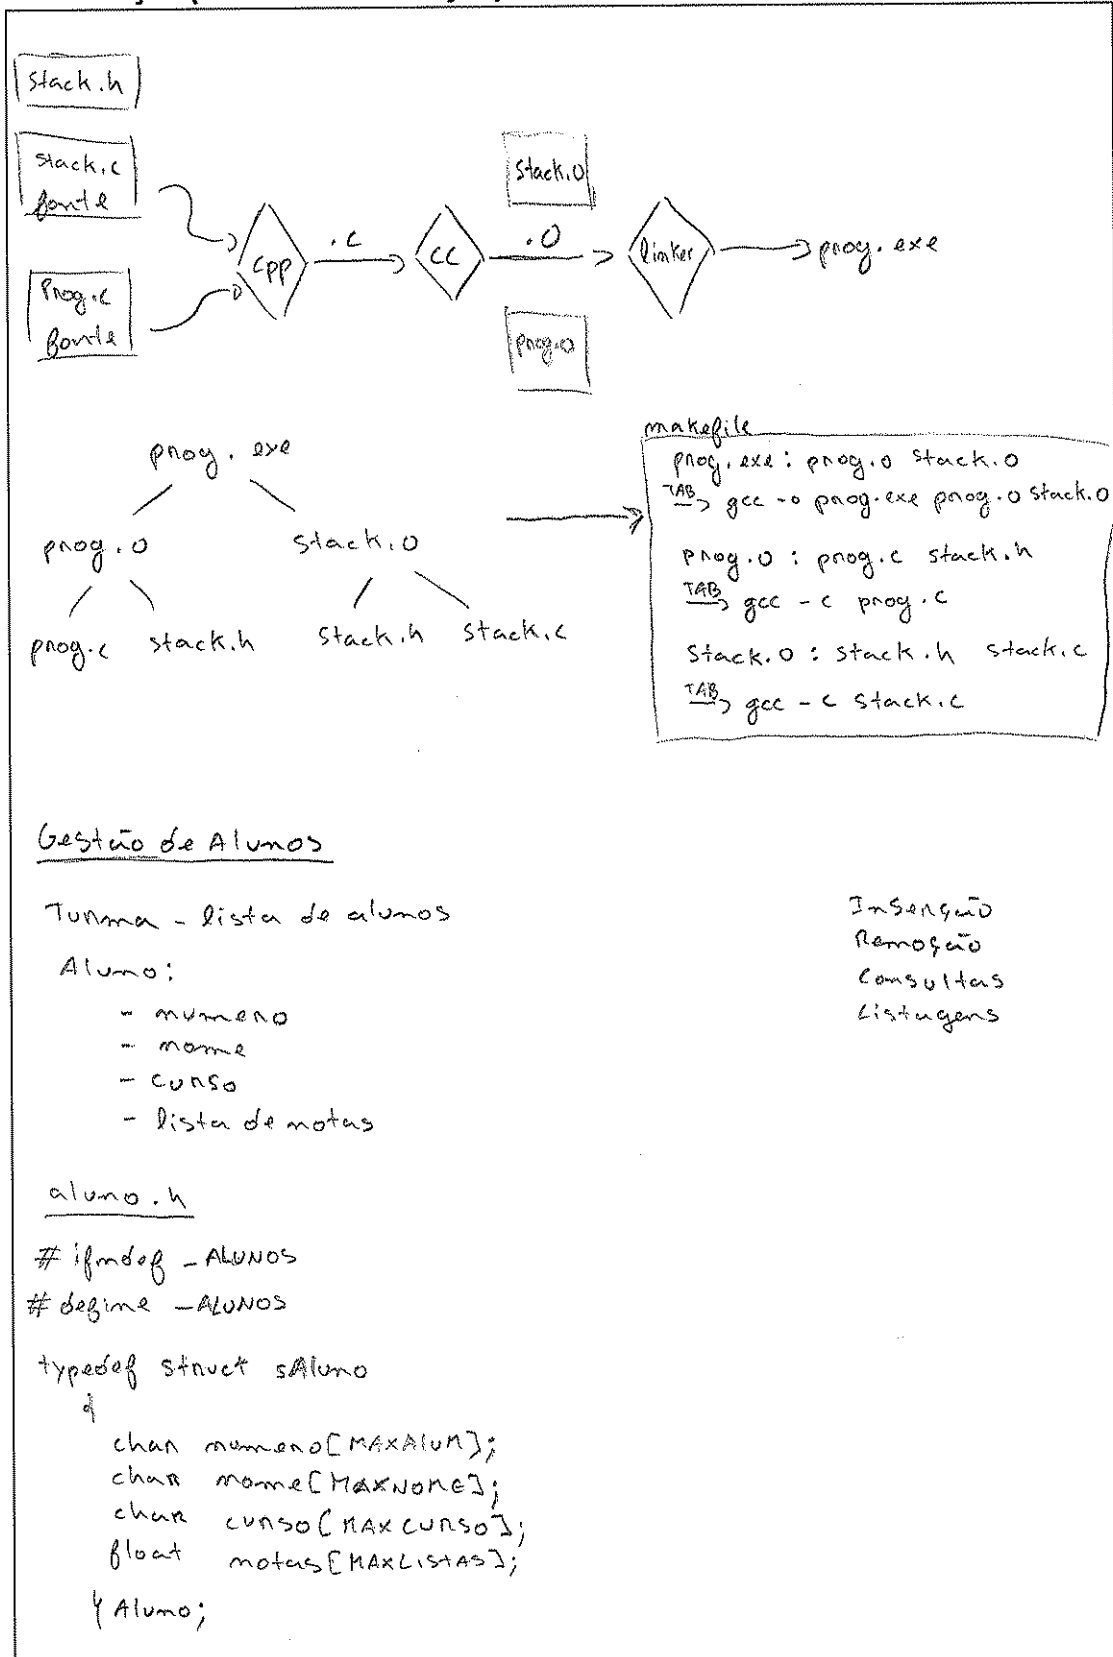 stack.h
stack.c
fonte
Prog.c
fonte
cpp
.c
cc
.o
stack.o
prog.o
linker
prog.exe
prog.exe
prog.o stack.o
prog.c stack.h stack.h stack.c
makefile
prog.exe : prog.o stack.o
TAB gcc -o prog.exe prog.o stack.o
prog.o : prog.c stack.h
TAB gcc -c prog.c
stack.o : stack.h stack.c
TAB gcc -c stack.c
Gestão de Alunos
Turma - lista de alunos
Aluno:
- numero
- nome
- curso
- lista de notas
Inserção
Remoção
Consultas
Listagens
aluno.h
# ifndef _ALUNOS
# define _ALUNOS
typedef struct sAluno
{
char numero[MAXALUM];
char nome[MAXNOME];
char curso[MAXCURSO];
float notas[MAXLISTAS];
} Aluno;